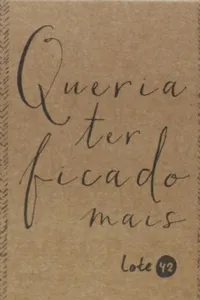 Queria
ter
ficado
mais
Lote 42